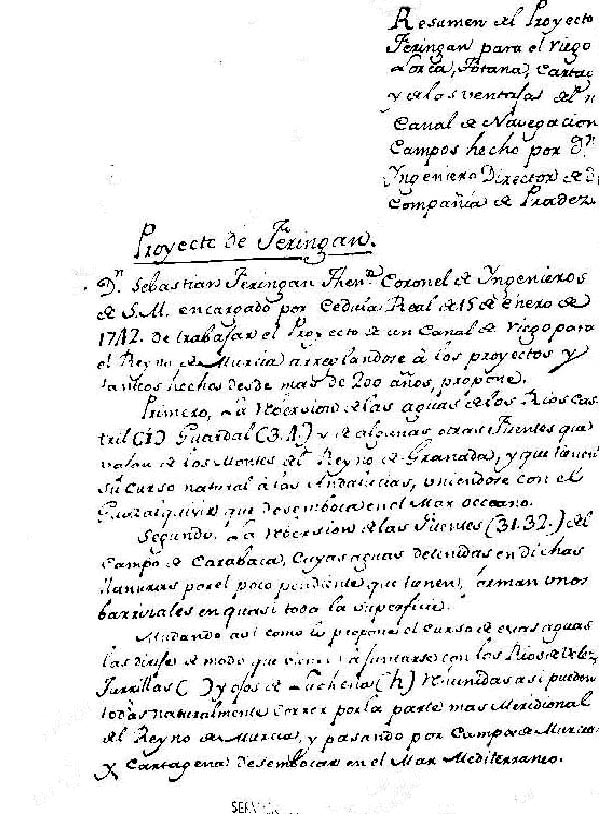 Resumen del Proyecto
Feringan para el Riego
Lorca, Totana, Cartag
y de los ventajas del n
Canal de Navegacion
Campos hecho por Dn
Ingeniero Director de d
Compañia de Pradez
Proyecto de Feringan.
Dn. Sebastian Feringan Then.te Coronel de Ingenieros
de S.M. encargado por Cedula Real de 15 de Enero de
1742. de trabajar el Proyecto de un Canal de Riego para
el Reyno de Murcia arreglandose à los proyectos y
tanteos hechos desde mas de 200 años, propone.
Primero, La reversion de las aguas de los Rios Cas
tril (I) Guardal (3.4.) y de algunas otras Fuentes que
salen de los Montes del Reyno de Granada, y que tienen
su curso natural à las Andalucias, uniendose con el
Guadalquivir que desemboca en el Mar Occeano.
Segundo. La reversion de las Fuentes (31.32.) del
Campo de Carabaca, Cuyas aguas detenidas en dichas
llanuras por el poco pendiente que tienen, forman unos
barrizales en quasi toda la superficie.
Mudando asi como lo propone el curso de estas aguas
las dirije de modo que vienen à juntarse con los Rios de Velez,
Turrillas ( ) y ojos de Luchena (h) Reunidas asi pueden
todas naturalmente correr por la parte mas Meridional
del Reyno de Murcia, y pasando por Campos de Murcia
y Cartagena desembocar en el Mar Mediterraneo.